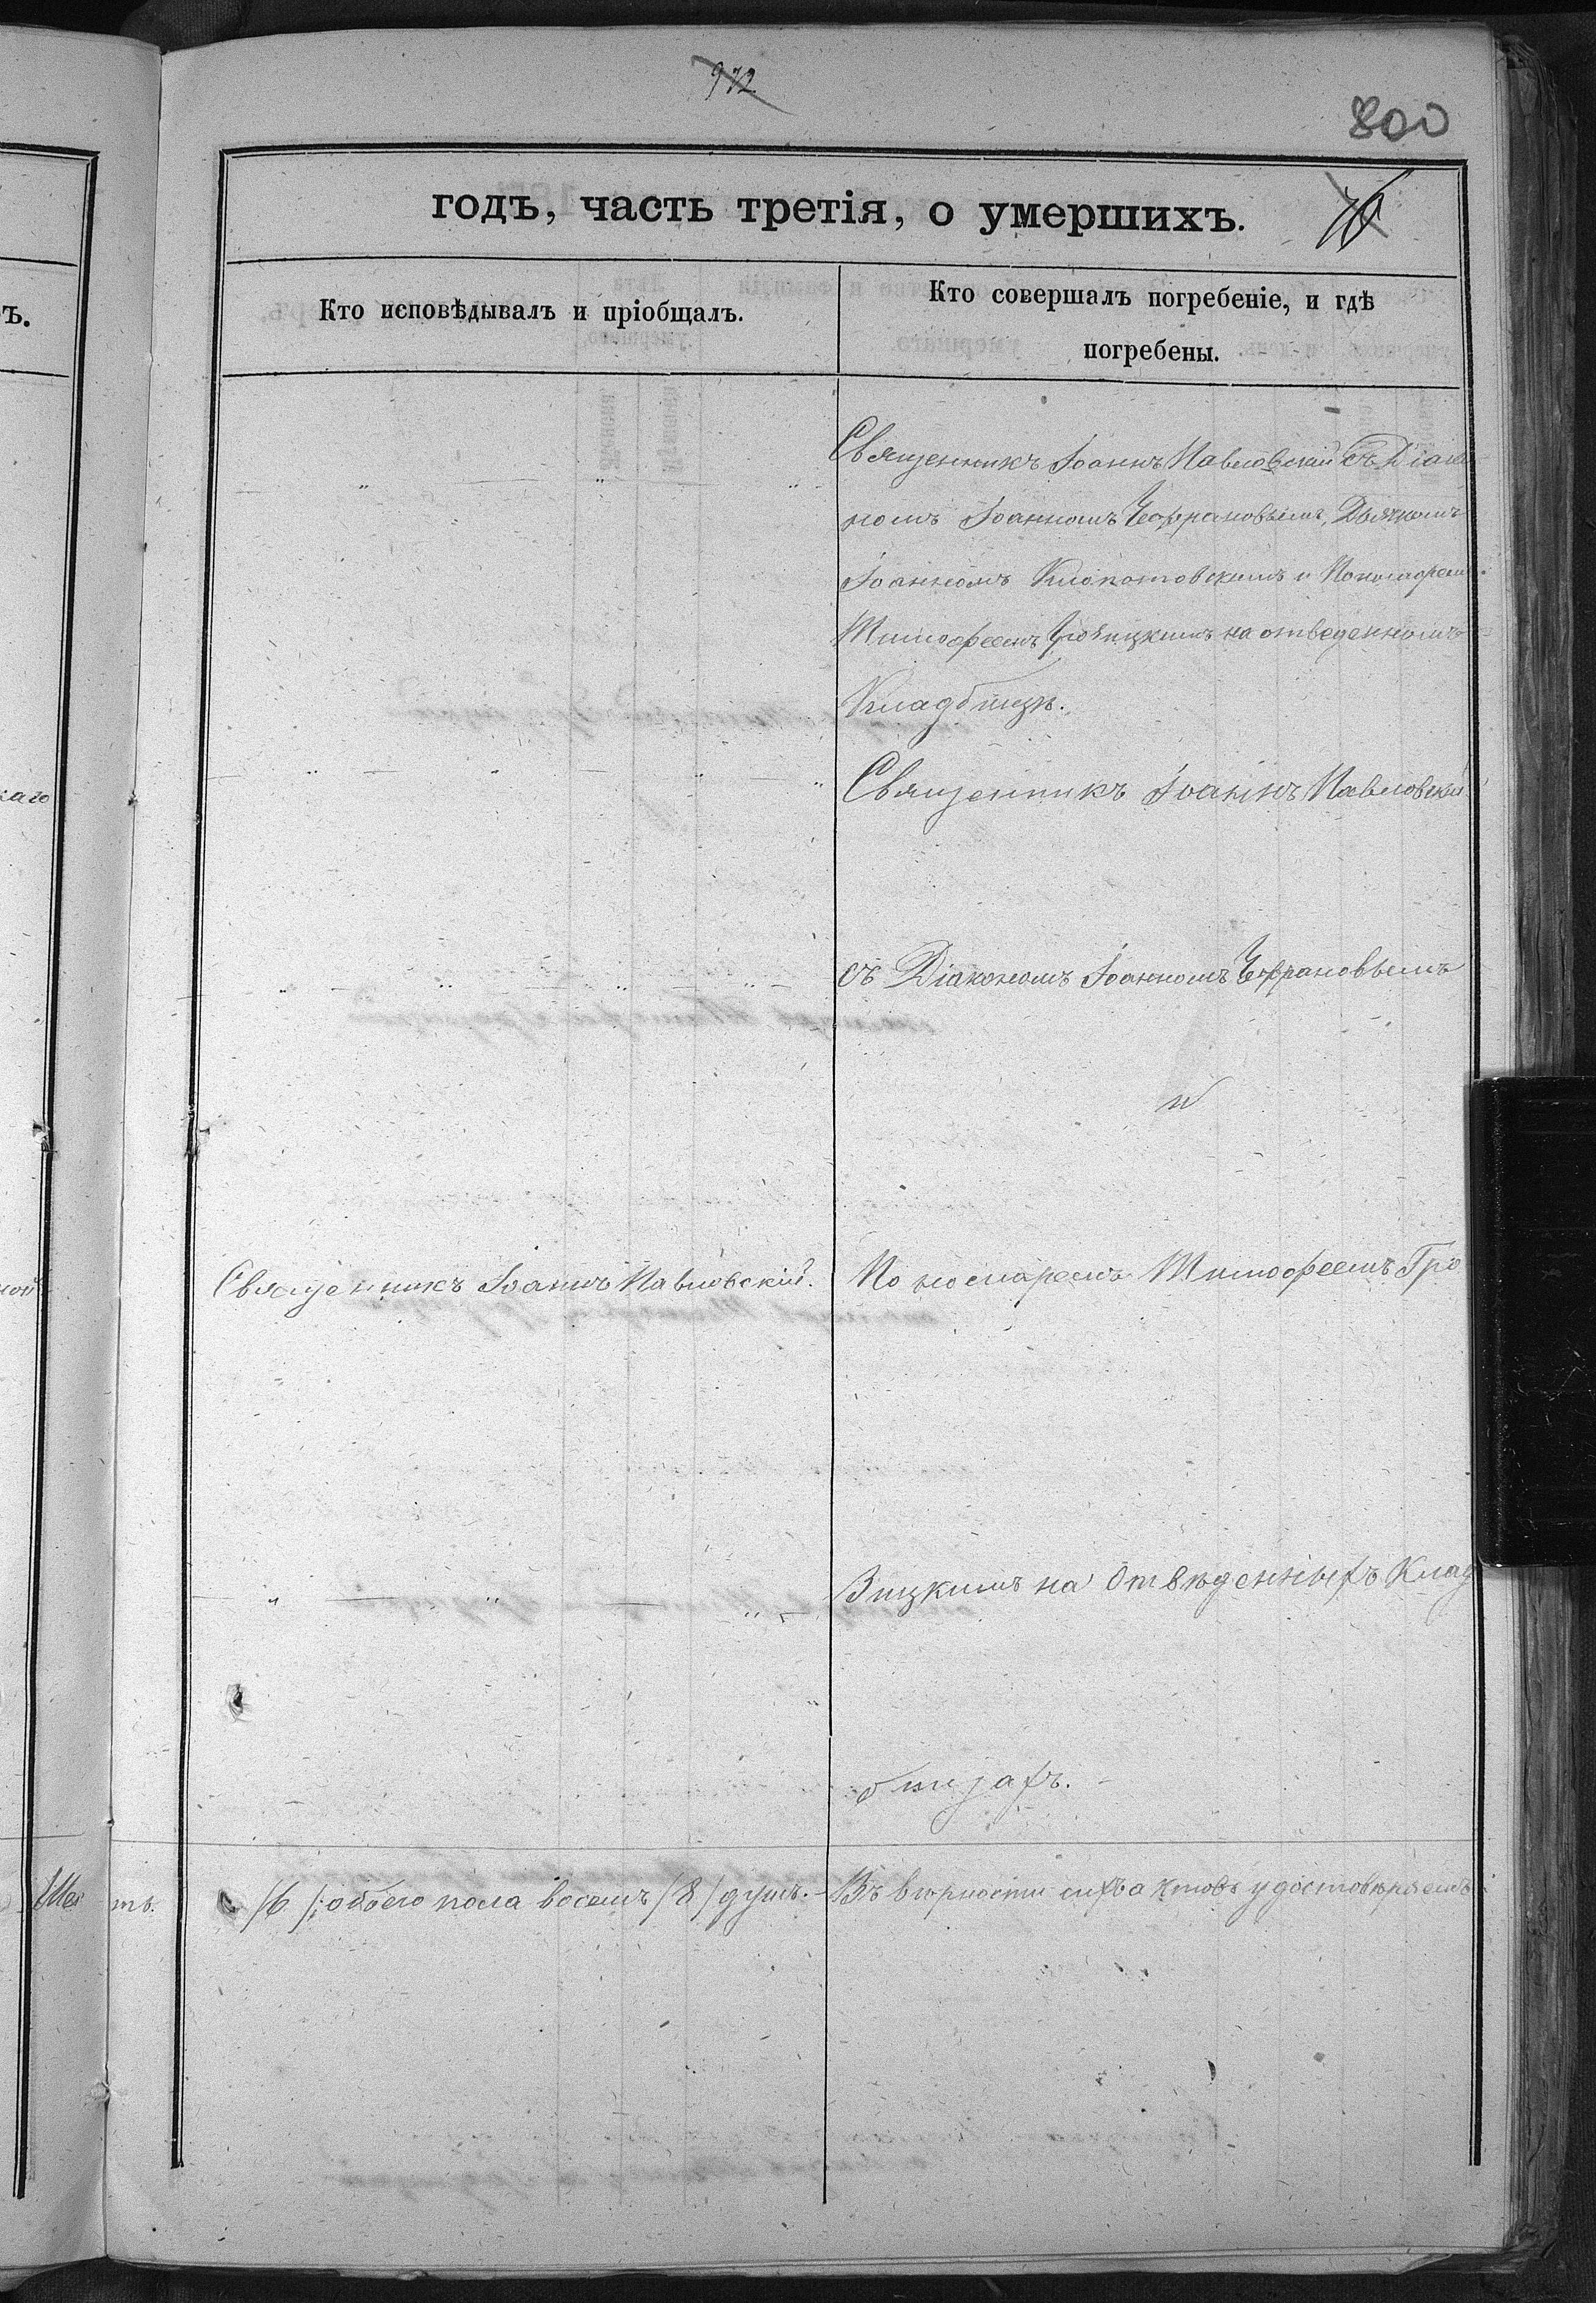 972
800
годъ, часть третія, о умершихъ.
Кто исповѣдывалъ и пріобщалъ.
Кто совершалъ погребеніе, и гдѣ
погребены.
ъ.
Священникъ Іоаннъ Павловскій съ Діако
номъ Іоанномъ Чефрановымъ, Дьячкомъ
Іоанномъ Клопотовскимъ и Пономаремъ
Тимофеемъ Грозицкимъ на отведенномъ
Кладбищѣ.
каго
Священникъ Іоаннъ Павловскій
съ Діакономъ Іоанномъ Чефрановымъ
и
ной
Священникъ Іоаннъ Павловскій.
Пономаремъ Тимофеемъ Гро
зицкимъ на отвѣденныхъ Клад
бищахъ.
Шес
ть.
/6/; обоего пола восемь /8/ душъ.-
Въ вѣрности сихъ актовъ удостовѣряемъ